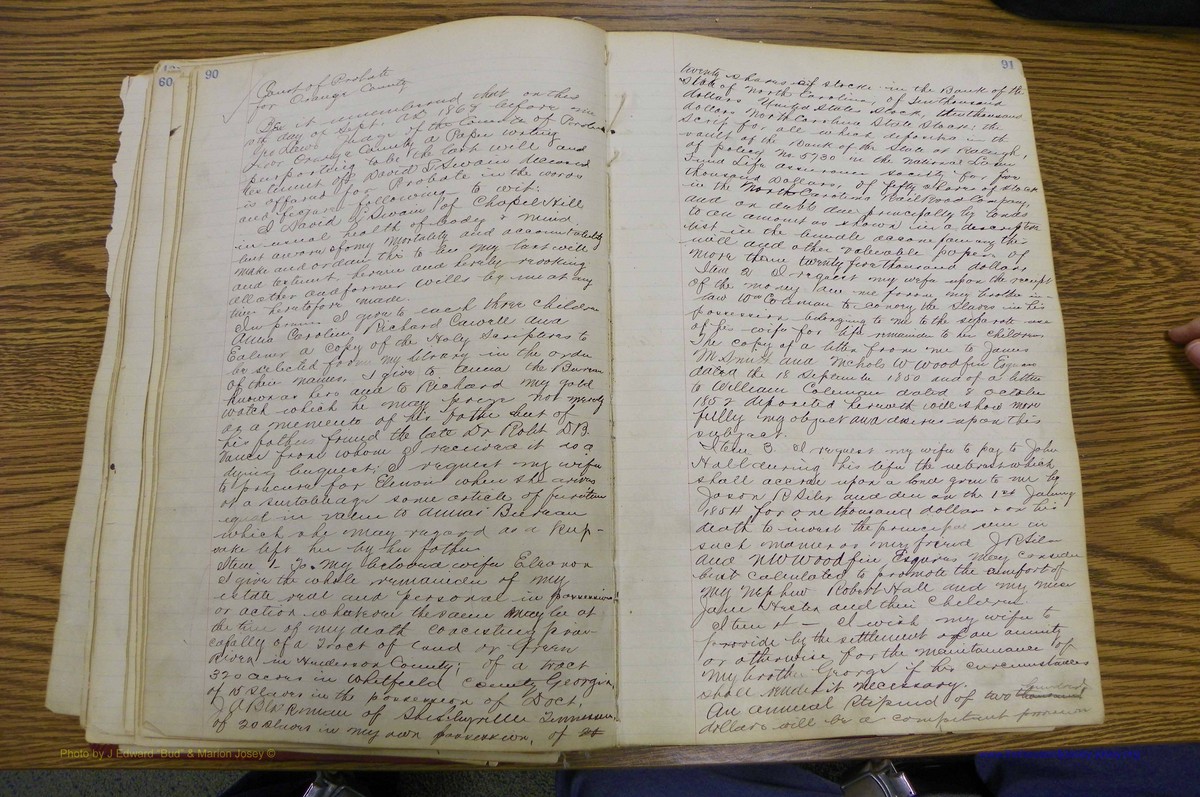 90
60
Court of Probate
for Orange County
Be it remembered that on this
day of Sept. AD, 1869 before me
Geo Laws Judge of the Courts of Probate
for Orange County a Paper writing
purporting to be the last will and
testament of David L Swain deceased
is offered for Probate in the words
and figures following to wit:
I David L Swain of Chapel Hill
in usual health of body & mind
but aware of my mortality and accountability
make and ordain this to be my last will
and testament herein and hereby revoking
all other and former wills by me at any
time heretofore made.
I give to each three children
Anna Caroline Richard Caswell and
a copy of the Holy Scriptures to
be selected from my library in the order
of their names. I give to Anna the Bureau
known as hers and to Richard my gold
watch which he may prize not merely
as a memento of his father but of
his fathers friend the late Dr Robt B
Vance from whom I received it as a
dying bequest; I request my wife
to procure for Eleanor when she arrives
at a suitable age some article of furniture
equal in value to Annas Bureau
which she may regard as a keep-
sake left her by her father
Item 2 To my beloved wife Eleanor
I give the whole remainder of my
estate real and personal in possession
or action whatsoever the same may be at
the time of my death consisting prin-
cipally of a Tract of land on Green
River in Henderson County; of a tract
320 acres in Whitfield County, Georgia,
of 15 slaves in the possession of Doct,
J A B W of Shelbyville Tennessee,
of 20 slaves in my own possession, of
91
twenty shares of stocks in the Bank of the
State of North Carolina, of ten thousand
dollars United States Stock, ten thousand
dollars North Carolina State Stock; the
scrip for all which deposited in the
vault of the Bank of the State at Raleigh;
of policy No 5730 in the National Loan
Fund Life assurance society for five
thousand dollars, of fifty shares of stock
in the North Carolina Rail Road Company,
and on debts due principally by bonds
to an amount as shown in a descriptive
list in the bundle accompanying this
will and other valuable papers of
more than twenty five thousand dollars
Item 2 I request my wife upon the receipt
of the money due me from my brother in
law Wm Coleman to convey the slaves in his
possession belonging to me to the separate use
of his wife for life remainder to his children
The copy of a letter from me to James
M Smith and Nicholas W Woodfin Esquires
dated the 18 September 1850 and of a letter
to William Coleman dated 8 October
1852 deposited herewith will show more
fully my object and desires upon this
subject.
Item 3. I request my wife to pay to John
Hall during his life the interest which
shall accrue upon a bond given to me by
Jason R Siler and due on the 1st January
1854 for one thousand dollars & on his
death to invest the principal sum in
such manner as my friend J R Siler
and N W Woodfin Esquires may consider
best calculated to promote the comfort of
my nephew Robert Hall and my niece
Jane Hester and their Children
Item 4 — I wish my wife to
provide by the settlement of an annuity
or otherwise for the maintainance of
my brother George if his circumstances
shall render it necessary.
An annual stipend of two thousand hundred
dollars will be a competent provision
Photo by J Edward "Bud" & Marion Josey ©